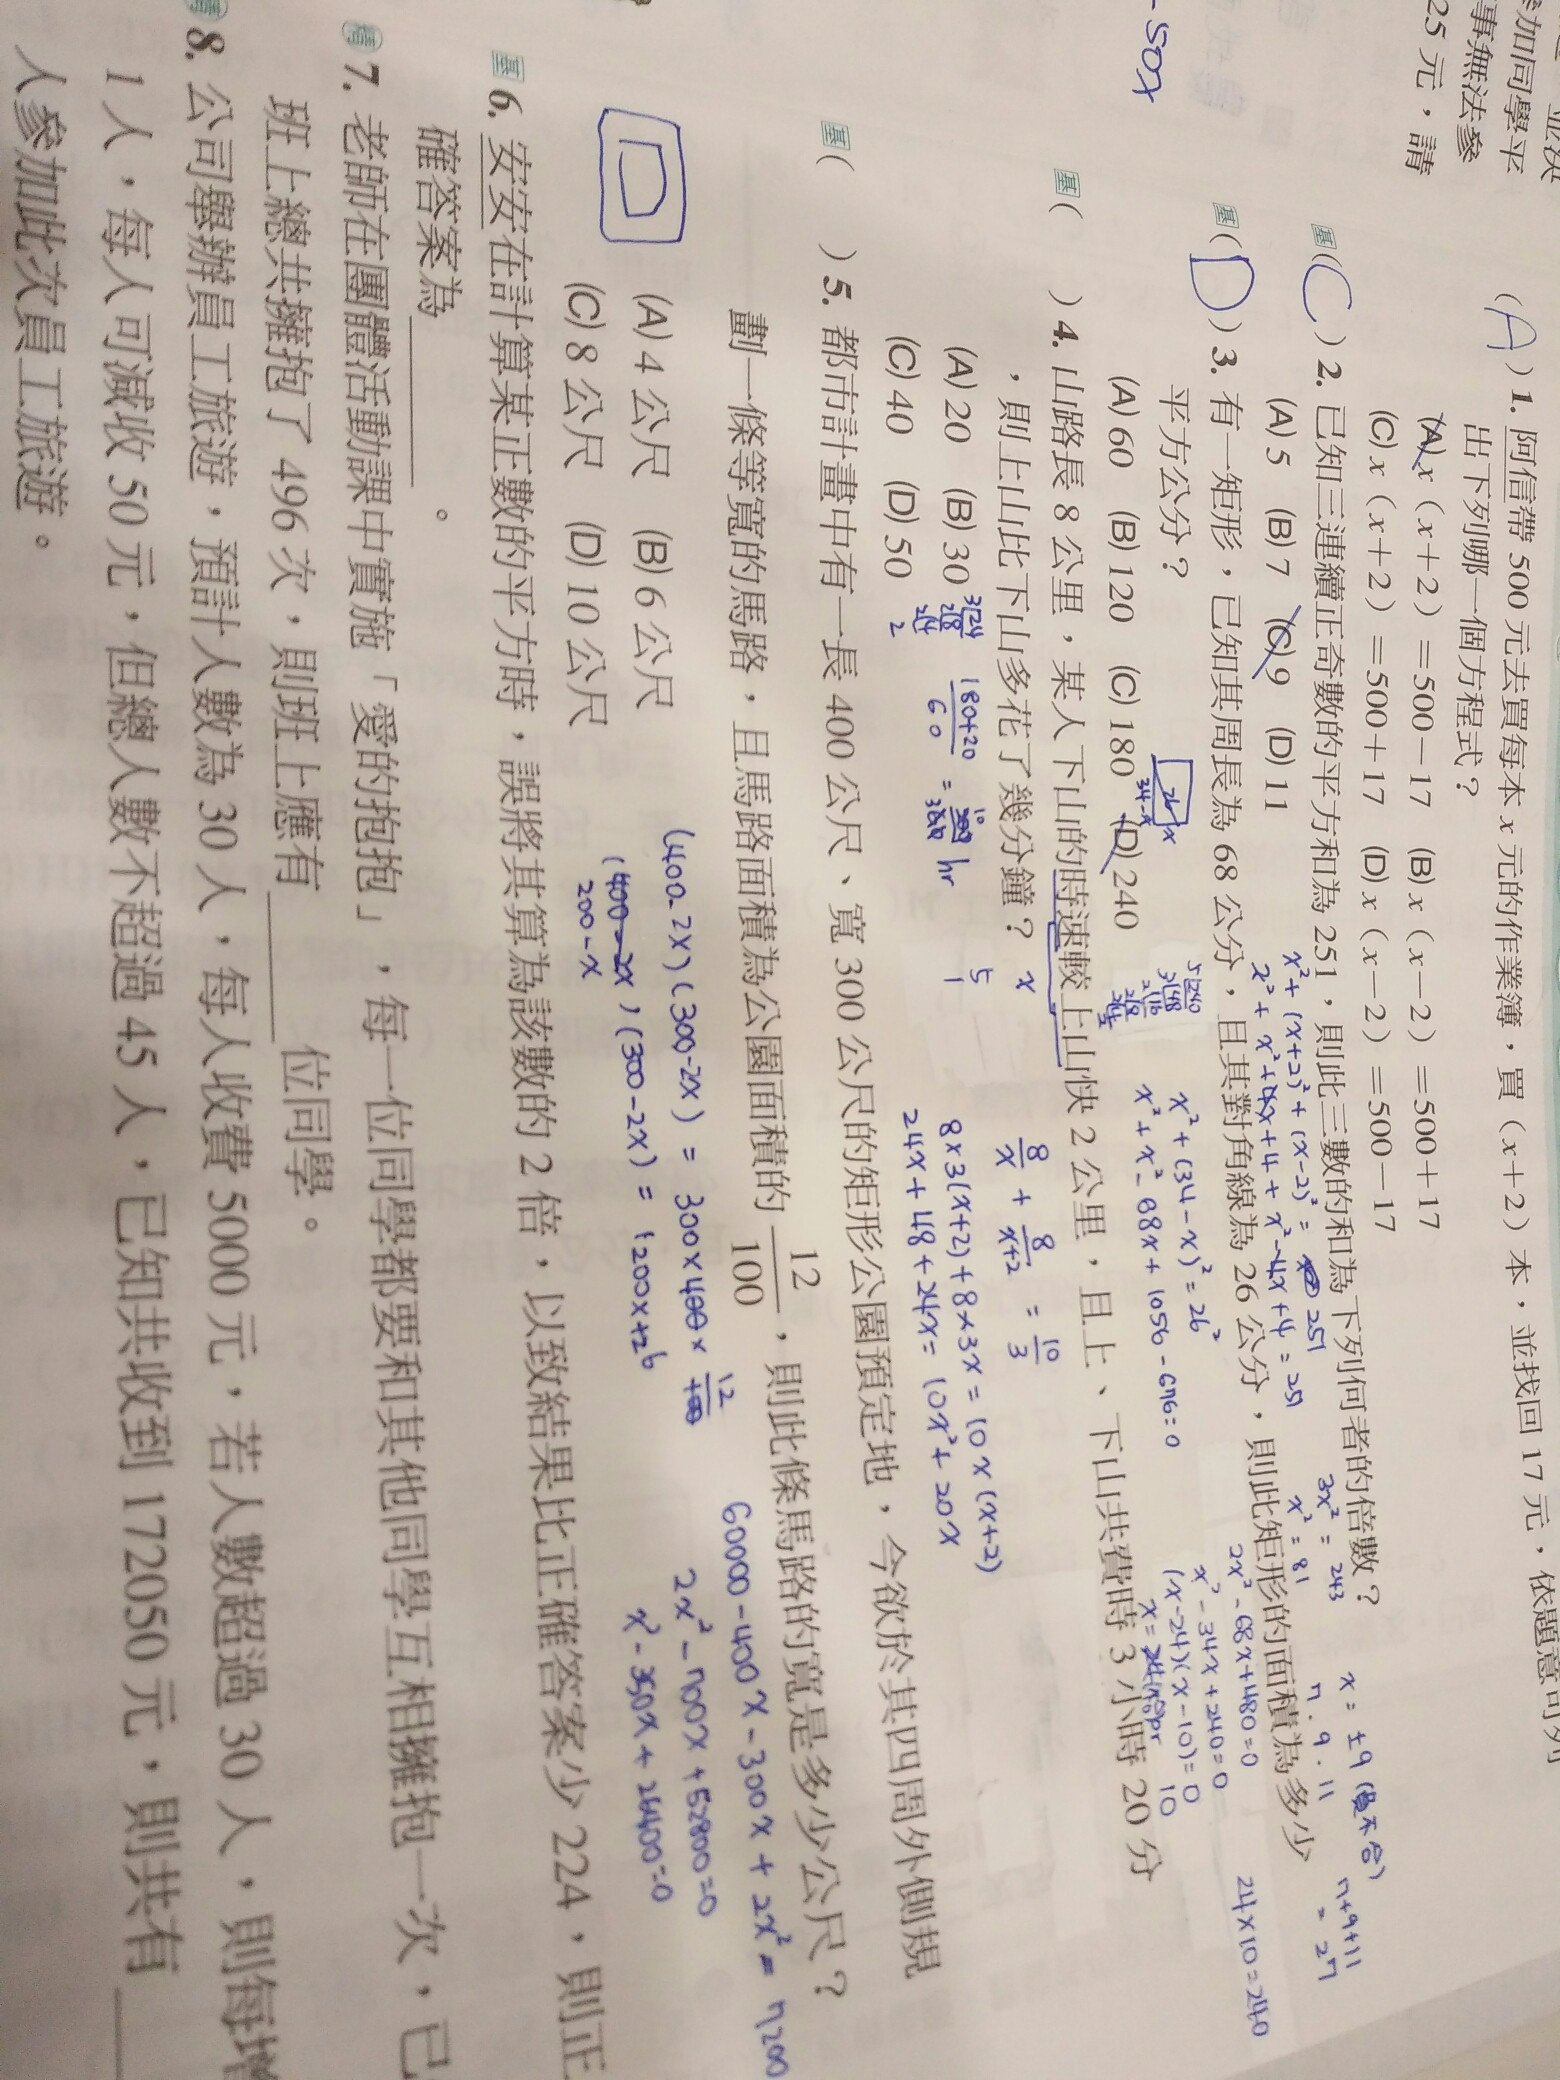 並決
參加同學平
事無法參
25元，請
-50x
(A) 1. 阿信帶500元去買每本x元的作業簿，買（x+2）本，並找回17元，依題意可列
出下列哪一個方程式？
(A) x（x+2）=500-17 (B) x（x-2）=500+17
(C) x（x+2）=500+17 (D) x（x-2）=500-17
基 (C) 2. 已知三連續正奇數的平方和為251，則此三數的和為下列何者的倍數？
(A) 5 (B) 7 (C) 9 (D) 11
x²+(x+2)²+(x-2)²= 251
x²+x²+4x+4+x²-4x+4=251
3x²=243
x²=81
x=±9 (負不合)
7.9.11
7+9+11
=27
基 (D) 3. 有一矩形，已知其周長為68公分，且其對角線為26公分，則此矩形的面積為多少
平方公分？
(A) 60 (B) 120 (C) 180 (D) 240
26
x
34-x
5|240
3|48
2|16
2|8
2|4
2
x²+(34-x)²=26²
x²+x²-68x+1156-676=0
2x²-68x+480=0
x²-34x+240=0
(x-24)(x-10)=0
x=24 or 10
24×10=240
基 ( ) 4. 山路長8公里，某人下山的時速較上山快2公里，且上、下山共費時3小時20分
，則上山比下山多花了幾分鐘？
(A) 20 (B) 30
(C) 40 (D) 50
3|24
2|8
2|4
2
180+20
60
= hr
x
5
1
8/x + 8/x+2 = 10/3
8×3(x+2)+8×3x=10x(x+2)
24x+48+24x=10x²+20x
基 ( ) 5. 都市計畫中有一長400公尺、寬300公尺的矩形公園預定地，今欲於其四周外側規
劃一條等寬的馬路，且馬路面積為公園面積的12/100，則此條馬路的寬是多少公尺？
(A) 4公尺 (B) 6公尺
(C) 8公尺 (D) 10公尺
D
(400-2x)(300-2x)=300×400×12/100
(400-2x)(300-2x)=1200x+26
200-x
60000-400x-300x+2x²=7200
2x²-700x+52800=0
x²-350x+26400=0
基 6. 安安在計算某正數的平方時，誤將其算為該數的2倍，以致結果比正確答案少224，則正
確答案為________。
精 7. 老師在團體活動課中實施「愛的抱抱」，每一位同學都要和其他同學互相擁抱一次，已
班上總共擁抱了496次，則班上應有________位同學。
精 8. 公司舉辦員工旅遊，預計人數為30人，每人收費5000元，若人數超過30人，則每增
1人，每人可減收50元，但總人數不超過45人，已知共收到172050元，則共有____
人參加此次員工旅遊。